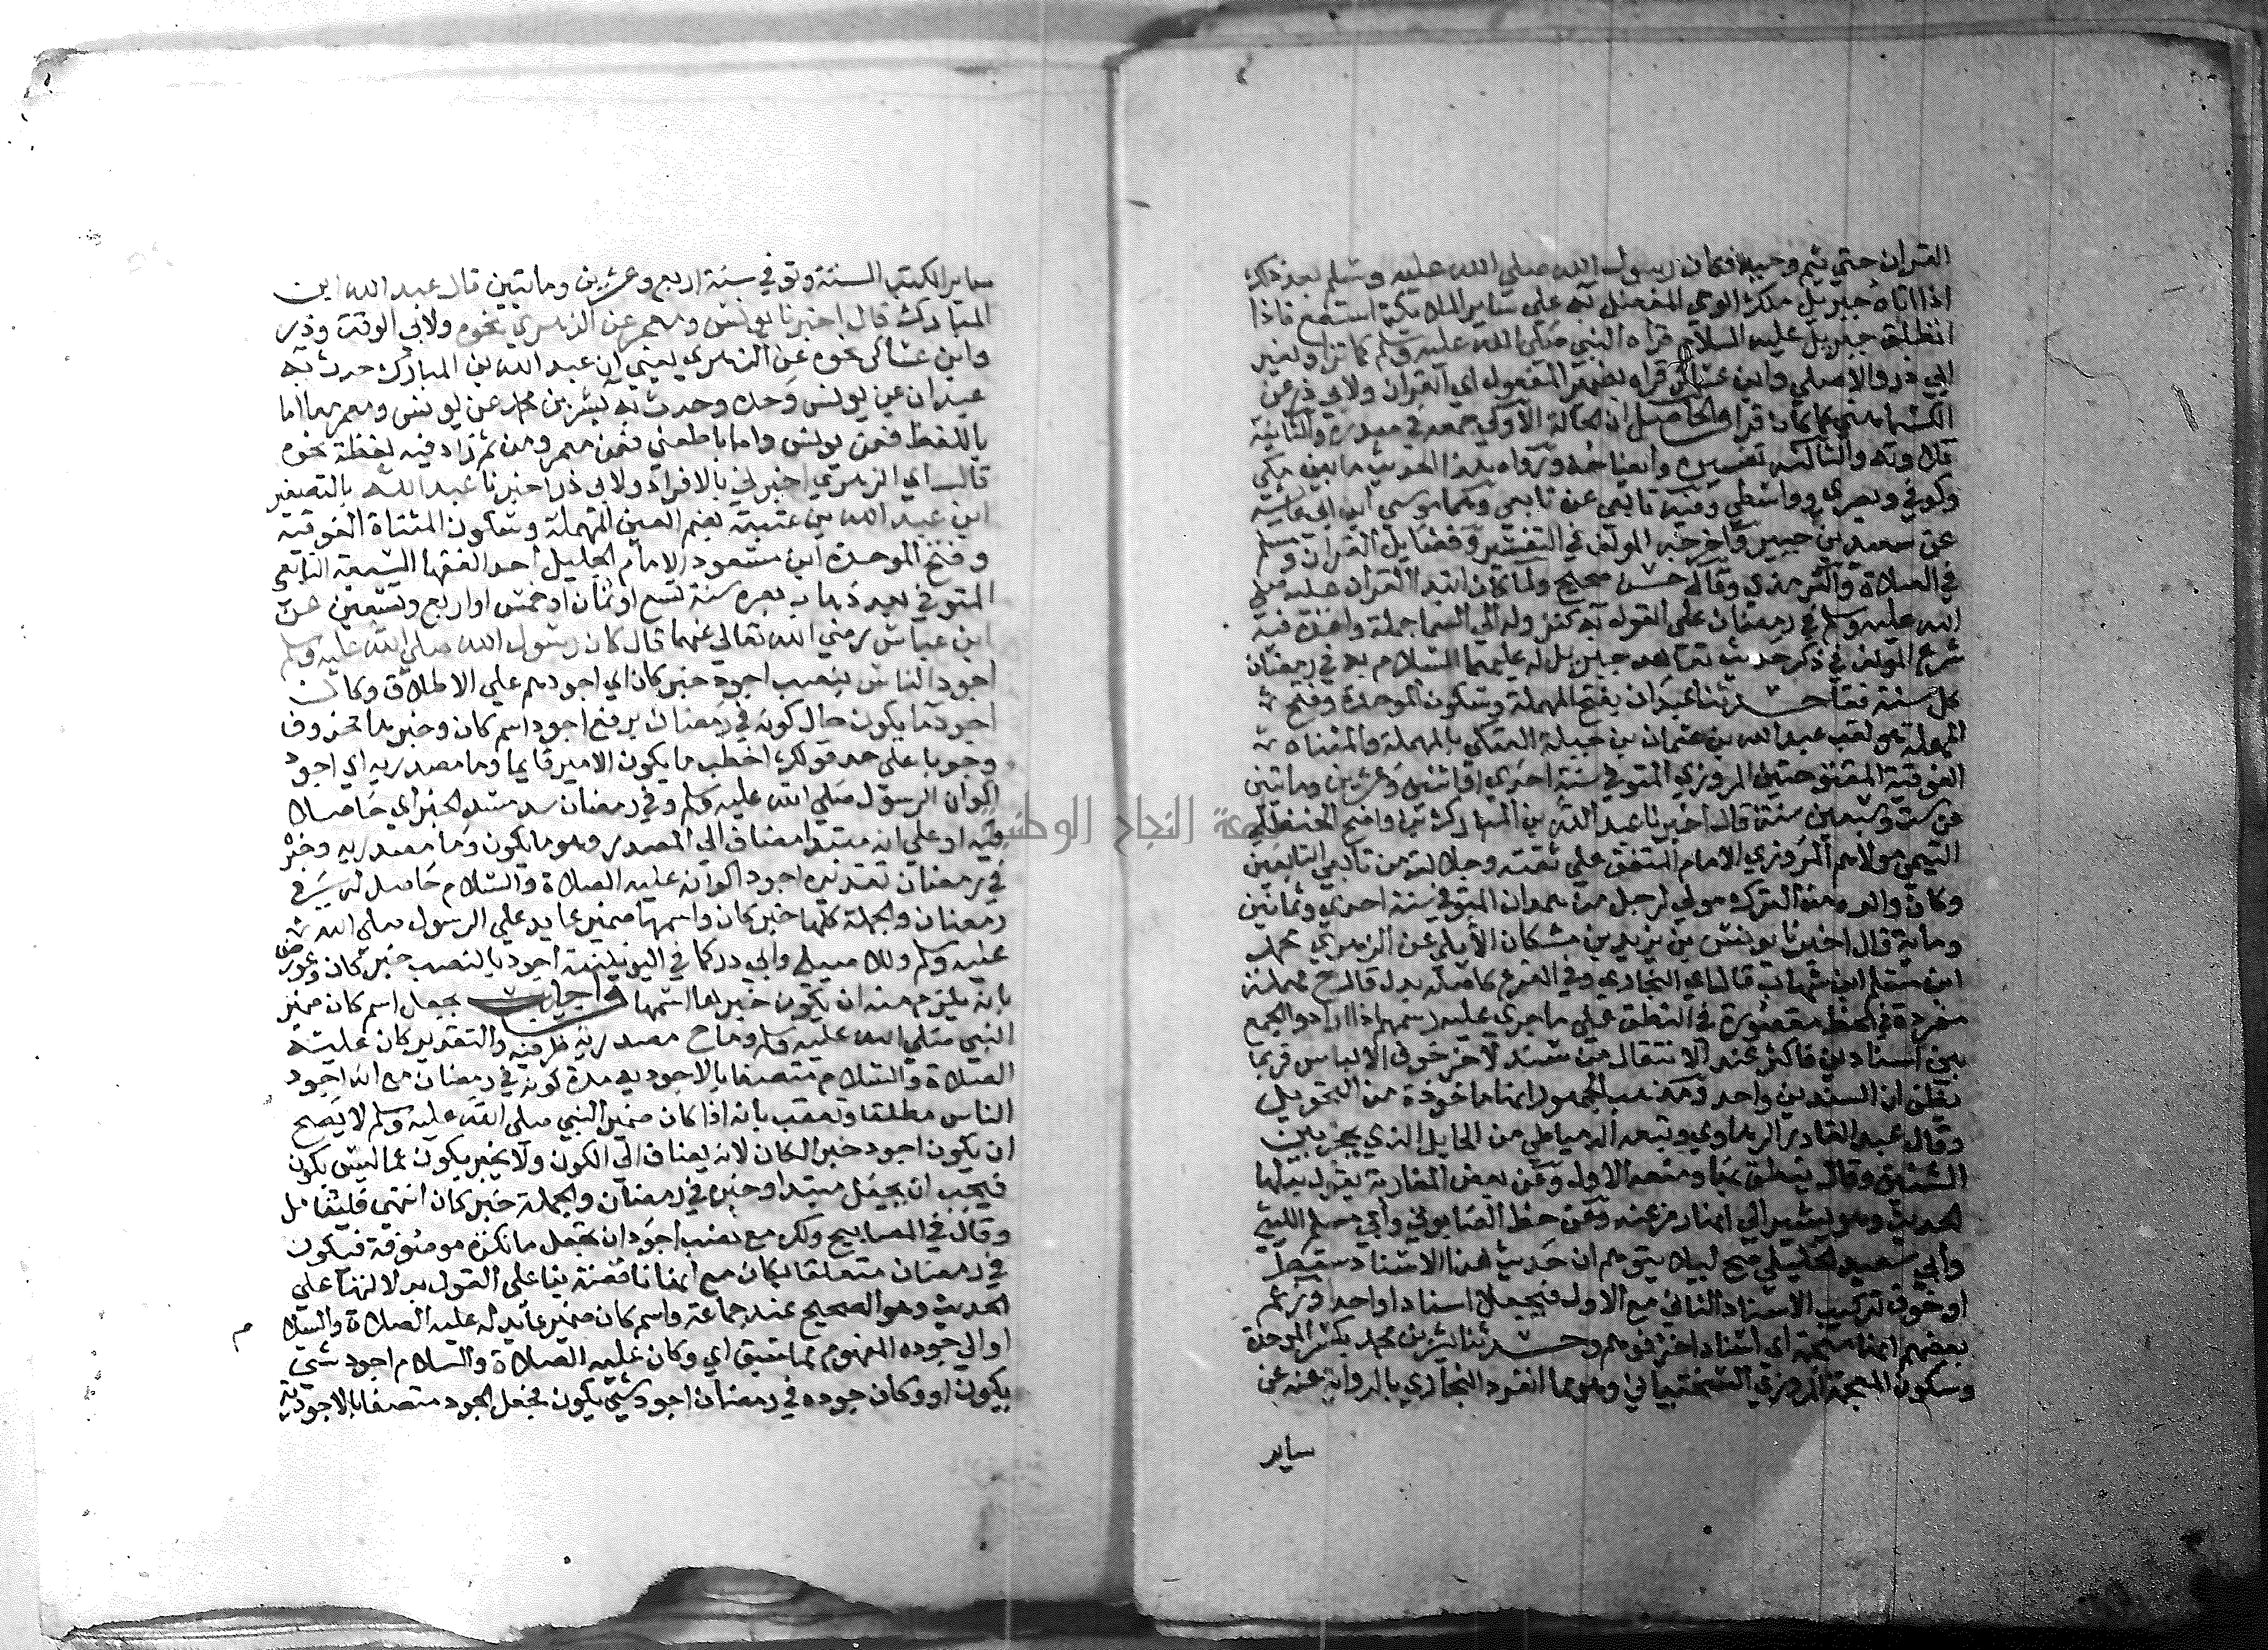 القران حتي يتم وحيه فكان رسول الله صلي الله عليه وسلم بعد ذلك
اذا اتاه جبريل ملك الوحي المفضل به علي ساير الملايكة استمع فاذا
انطلق جبريل عليه السلام قراه النبي صلي الله عليه وسلم كما قرا ولغير
ابي ذر والاصيلي وابن عساكر قراه بضمير المفعول اي القران ولابي ذر عن
الكشميهني كما كان قرا والحاصل ان الحالة الاولي جمعه في صدره والثانية
تلاوته والثالثة تفسيره وايضاحه ورواة هذا الحديث ما بين مكي
وكوفي وبصري وواسطي وفيه تابعي عن تابعي وهما موسي ابن ابي عايشة
عن سعيد بن جبير واخرجه المولف في التفسير وفضايل القران ومسلم
في الصلاة والترمذي وقال حسن صحيح ولما كان ابتدا القران عليه صلي
الله عليه وسلم في رمضان علي القول به كنزوله الي السما جملة واحدة فيه
شرع المولف في ذكر حديث تعاهد جبريل له عليهما السلام به في رمضان
كل سنة فقال حدثنا عبدان بفتح المهملة وسكون الموحدة وفتح
المهملة هو لقب عبد الله بن عثمان بن جبلة العتكي بالمهملة والمثناة
الفوقية المفتوحتين المروزي المتوفي سنة احدي او اثنين وعشرين وماتين
عن ست وسبعين سنة قال اخبرنا عبد الله بن المبارك بن واضح الحنظلي
التيمي مولاهم المروزي الامام المتفق علي ثقته وجلالته من تابعي التابعين
وكان والده من الترك مولي لرجل من همدان المتوفي سنة احدي وثمانين
وماية قال اخبرنا يونس بن يزيد بن مشكان الايلي عن الزهري محمد
ابن مسلم ابن شهاب قال اي البخاري وفي الفرع كاصله بدل قال ح مهملة
مفردة في الخط مقصورة في النطق علي ما جري عليه رسمهم اذا ارادوا الجمع
بين اسنادين فاكثر عند الانتقال من سند لاخر خوف الالباس فربما
يظن ان السندين واحد ومذهب الجمهور انها ماخوذة من التحويل
وقال عبد القادر الرهاوي وتبعه الدمياطي من الحايل الذي يحجز بين
الشيئين وقال ينطق بها ومنعه الاول وعن بعض المغاربة يقول بدلها
الحديث وهو يشير الي انها رمز عنه وعن خط الصابوني وابي مسلم الليثي
وابي سعيد الخليلي صح ليلا يتوهم ان حديث هذا الاسناد سقط
او خوف تركيب الاسناد الثاني مع الاول فيجعلا اسنادا واحدا وزعم
بعضهم انها معجمة اي اسناد اخر فوهم وحدثنا بشر بن محمد بكسر الموحدة
وسكون المعجمة المروزي السختياني وهو مما انفرد البخاري بالرواية عنه عن
ساير
ساير الكتب الستة وتوفي سنة اربع وعشرين وماتين قال عبد الله ابن
المبارك قال اخبرنا يونس ومعمر عن الزهري نحوه ولابي الوقت وذر
وابن عساكر نحوه عن الزهري يعني ان عبد الله بن المبارك حدث به
عبدان عن يونس وحده وحدث به بشر بن محمد عن يونس ومعمر معا اما
باللفظ فعن يونس واما بالمعني فعن معمر ومن ثم زاد فيه لفظة نحوه
قال اي الزهري اخبرني بالافراد ولابي ذر اخبرنا عبيد الله بالتصغير
ابن عبد الله بن عتبة بضم العين المهملة وسكون المثناة الفوقية
وفتح الموحدة ابن مسعود الامام الجليل احد الفقها السبعة التابعي
المتوفي بعد ذهاب بصره سنة تسع او ثمان او خمس او اربع وتسعين عن
ابن عباس رضي الله تعالي عنهما قال كان رسول الله صلي الله عليه وسلم
اجود الناس بنصب اجود خبر كان اي اجودهم علي الاطلاق وكان
اجود ما يكون حال كونه في رمضان برفع اجود اسم كان وخبرها محذوف
وجوبا علي حد قولك اخطب ما يكون الامير قايما وما مصدرية اي اجود
اكوان الرسول صلي الله عليه وسلم وفي رمضان سد مسد الخبر اي حاصلا
فيه او علي انه مبتدا مضاف الي المصدر وهو ما يكون وما مصدرية وخبره
في رمضان تقديره اجود اكوانه عليه الصلاة والسلام حاصل له في
رمضان والجملة كلها خبر كان واسمها ضمير عايد علي الرسول صلي الله
عليه وسلم وللاصيلي وابي ذر كما في اليونينية اجود بالنصب خبر كان وعورض
بانه يلزم منه ان يكون خبرها اسمها واجاب بجعل اسم كان ضمير
النبي صلي الله عليه وسلم وما ح مصدرية ظرفية والتقدير كان عليه
الصلاة والسلام متصفا بالاجودية مدة كونه في رمضان مع انه اجود
الناس مطلقا وتعقب بانه اذا كان ضمير النبي صلي الله عليه وسلم لا يصح
ان يكون اجود خبرا لكان لانه يضاف الي الكون ولا يخبر بكون عما ليس بكون
فيجب ان يجعل مبتدا وخبره في رمضان والجملة خبر كان انتهي فليتامل
وقال في المصابيح ولك مع نصب اجود ان تجعل ما نكرة موصوفة فيكون
في رمضان متعلقا بكان مع انها ناقصة بنا علي القول بدلالتها علي
الحديث وهو الصحيح عند جماعة واسم كان ضمير عايد له عليه الصلاة والسلام
او الي جوده المفهوم مما سبق اي وكان عليه الصلاة والسلام اجود شي
يكون او وكان جوده في رمضان اجود شي يكون فجعل الجود متصفا بالاجودية
جامعة النجاح الوطنية